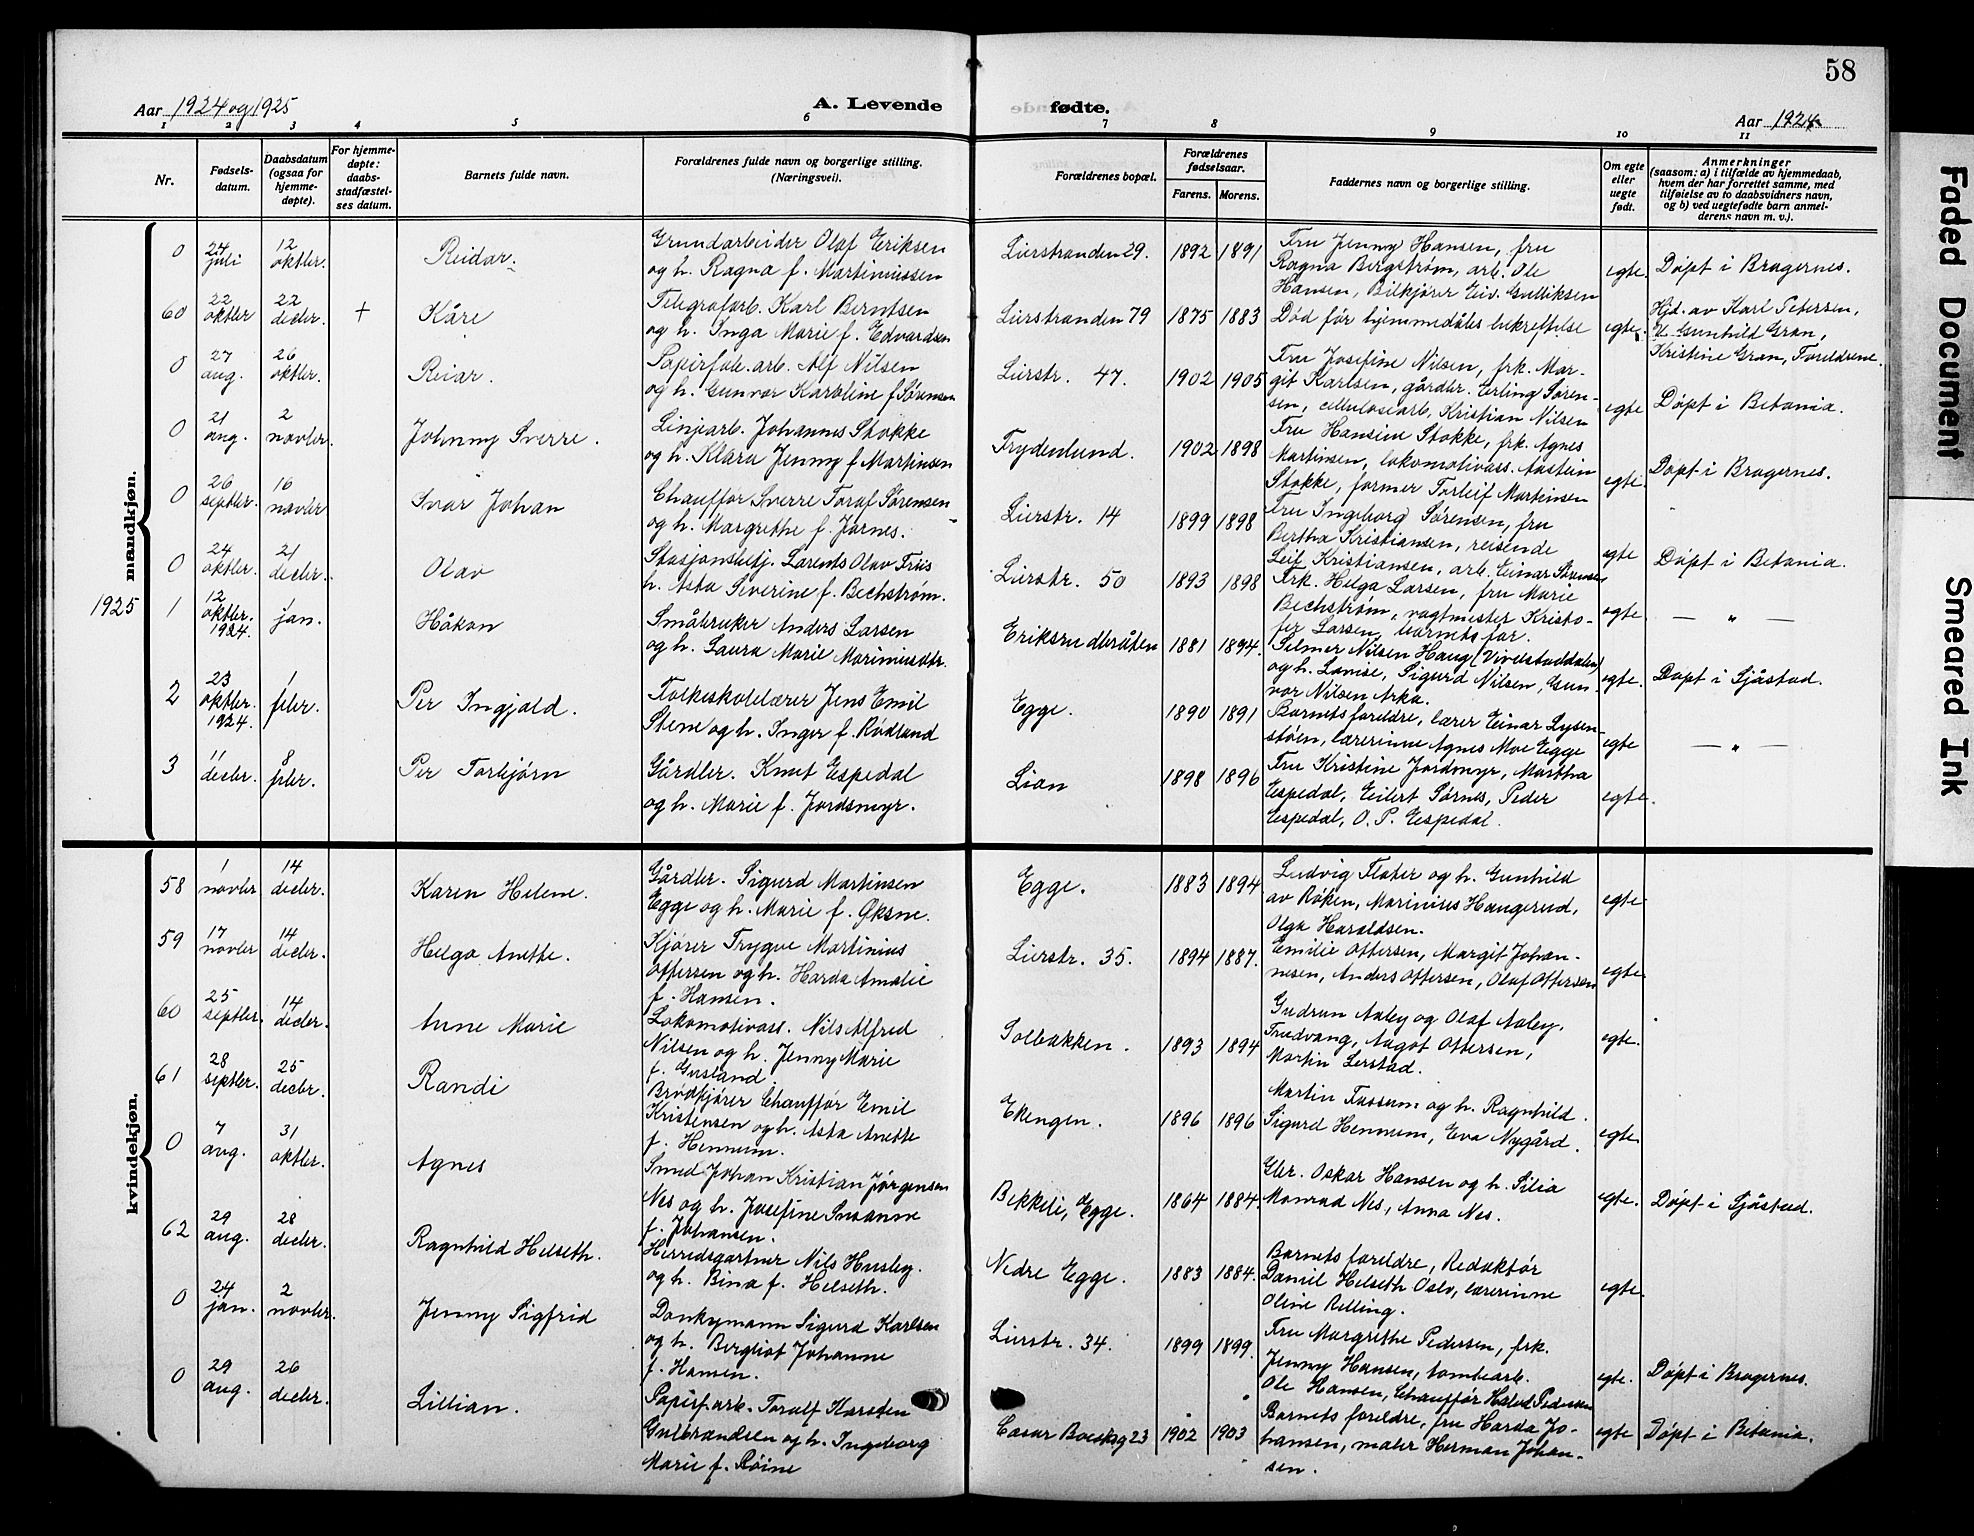 58
Aar 1924 og 1925
A. Levende fødte.
Aar 1924
1 2 3 4 5 6 7 8 9 10 11
Nr.
Fødsels-
datum.
Daabsdatum
(ogsaa for
hjemme-
døpte).
For hjemme-
døpte:
daabs-
stadfæstel-
ses datum.
Barnets fulde navn.
Forældrenes fulde navn og borgerlige stilling.
(Næringsvei).
Forældrenes bopæl.
Forældrenes
fødselsaar.
Farens. Morens.
Faddernes navn og borgerlige stilling.
Om egte
eller
uegte
født.
Anmerkninger
(saasom: a) i tilfælde av hjemmedaab,
hvem der har forrettet samme, med
tilføielse av to daabsvidners navn,
og b) ved uegtefødte barn anmel-
derens navn m. v.).
mandkjøn.
0
24
juli
12
oktbr.
Reidar.
Grundarbeider Olaf Eriksen
og h. Ragna f. Martinussen
Lierstranden 29. 1892 1891
Fru Jenny Hansen, fru
Ragna Bergstrøm, arb. Ole
Hansen, Bilkjører Eiv. Gulliksen
egte. Døpt i Bragernes.
60
22
oktbr
22
decbr.
+
Kåre
Telegrafarb. Karl Berntsen
og h. Inga Marie f. Edvardsen
Lierstranden 79 1875 1883
Død før hjemmedåbs bekreftelse
egte.
Hjd. av Karl Petersen,
V. Gunhild Gran,
Kristine Gran, Foreldrene.
0
27
aug.
26
oktbr.
Reiar.
Papirfab. arb. Alf Nilsen
og h. Gunvor Karoline f. Sørensen
Lierstr. 47. 1902 1905
Fru Josefine Nilsen, frk. Mar-
git Karlsen, gårdbr. Erling Søren-
sen, cellulosearb. Kristian Nilsen
egte Døpt i Betania.
0
21
aug.
2
novbr.
Johnny Sverre.
Linjearb. Johannes Stokke
og h. Klara Jenny f. Martinsen
Frydenlund. 1902 1898
Fru Hansine Stokke, frk. Agnes
Martinsen, lokomotivass. Aastein
Stokke, former Torleif Martinsen
egte. Døpt i Bragernes.
0
26
septbr.
16
novbr
Ivar Johan
Chauffør Sverre Toralf Sørensen
og h. Margrethe f. Jarnes.
Lierstr. 14 1899 1898
Fru Ingeborg Sørensen, fru
Bertha Kristiansen, reisende
Leif Kristiansen, arb. Einar Sørensen
egte Døpt i Betania.
0
24
oktbr.
21
decbr.
Olav
Stasjonsbetj. Larents Olav Friis
h. Asta Severine f. Bechstrøm.
Lierstr. 50 1893 1898
Frk. Helga Larsen, fru Marie
Bechstrøm, vagtmester Kristo-
fer Larsen, barnets far.
egte. — „ —
1925
1
12
oktbr.
1924.
1
jan.
Håkon
Småbruker Anders Larsen
og h. Laura Marie Marinusdtr.
Eriksrudbråten 1881 1894.
Selmer Nilsen Haug (Vivelstaddalen)
og h. Lovise, Sigurd Nilsen, Gun-
vor Nilsen Arka.
egte. Døpt i Sjåstad.
2
23
oktbr.
1924.
1
febr.
Per Ingjald.
Folkeskolelærer Jens Emil
Stene og h. Inger f. Rødland
Egge. 1890 1891
Barnets foreldre, lærer Einar Lysen-
støen, lærerinne Agnes Moe Egge
egte — „ —
3
11
decbr.
8
febr.
Per Torbjørn
Gårdbr. Knut Espedal
og h. Marie f. Jordsmyr.
Lian 1898 1896
Fru Kristine Jordsmyr, Martha
Espedal, Eilert Sørnes, Peder
Espedal, O. P. Espedal.
egte.
kvindekjøn.
58
1
novbr
14
decbr.
Karen Helene.
Gårdbr. Sigurd Martinsen
Egge og h. Marie f. Øksne.
Egge. 1883 1894
Ludvig Flater og h. Gunhild
av Røken, Marinius Haugerud,
Olga Haraldsen.
egte.
59
17
novbr
14
decbr.
Helga Anette.
Kjører Trygve Martinius
Ottersen og h. Harda Amalie
f. Hansen.
Lierstr. 35. 1894 1887.
Emilie Ottersen, Margit Johan-
nesen, Anders Ottersen, Olaf Ottersen
egte.
60
25
septbr.
14
decbr.
Anne Marie
Lokomotivass. Nils Alfred
Nilsen og h. Jenny Marie
f. Gusland.
Solbakken. 1893 1894
Gudrun Aaby og Olaf Aaby,
Trudvang, Aagot Ottersen,
Martin Lerstad.
egte.
61
28
septbr.
25
decbr.
Randi
Brødkjører Chauffør Emil
Kristensen og h. Asta Anette
f. Hennum.
Ekengen. 1896 1896
Martin Fossum og h. Ragnhild.
Sigurd Hennum, Eva Nygård.
egte.
0
7
aug.
31
oktbr.
Agnes
Smed Johan Kristian Jørgensen
Nes og h. Josefine Susanne
f. Johansen.
Bekkeli, Egge. 1864 1884
Gbr. Oskar Hansen og h. Silia
Monrad Nes, Anna Nes.
egte. Døpt i Sjåstad.
62
29
aug.
28
decbr.
Ragnhild Helseth.
Herredsgartner Nils Husby.
og h. Bina f. Helseth.
Nedre Egge. 1883 1884.
Barnets foreldre, Redaktør
Daniel Helseth Oslo, lærerinne
Oline Relling.
egte.
0
24
jan.
2
novbr.
Jenny Sigfrid
Donkymann Sigurd Karlsen
og h. Bergliot Johanne
f. Hansen.
Lierstr. 34. 1899 1899.
Fru Margrethe Pedersen, frk.
Jenny Hansen, tomtearb.
Ole Hansen, Chauffør Halvd. Pedersen
egte. Døpt i Bragernes.
0
29
aug.
26
decbr.
Lillian.
Papirf.arb. Toralf Karsten
Gulbrandsen og h. Ingeborg
Marie f. Røine
1902 1903
Barnets foreldre, fru Harda Jo-
hansen, maler Herman Johan-
sen.
egte Døpt i Betania.
Faded Document
Smeared Ink